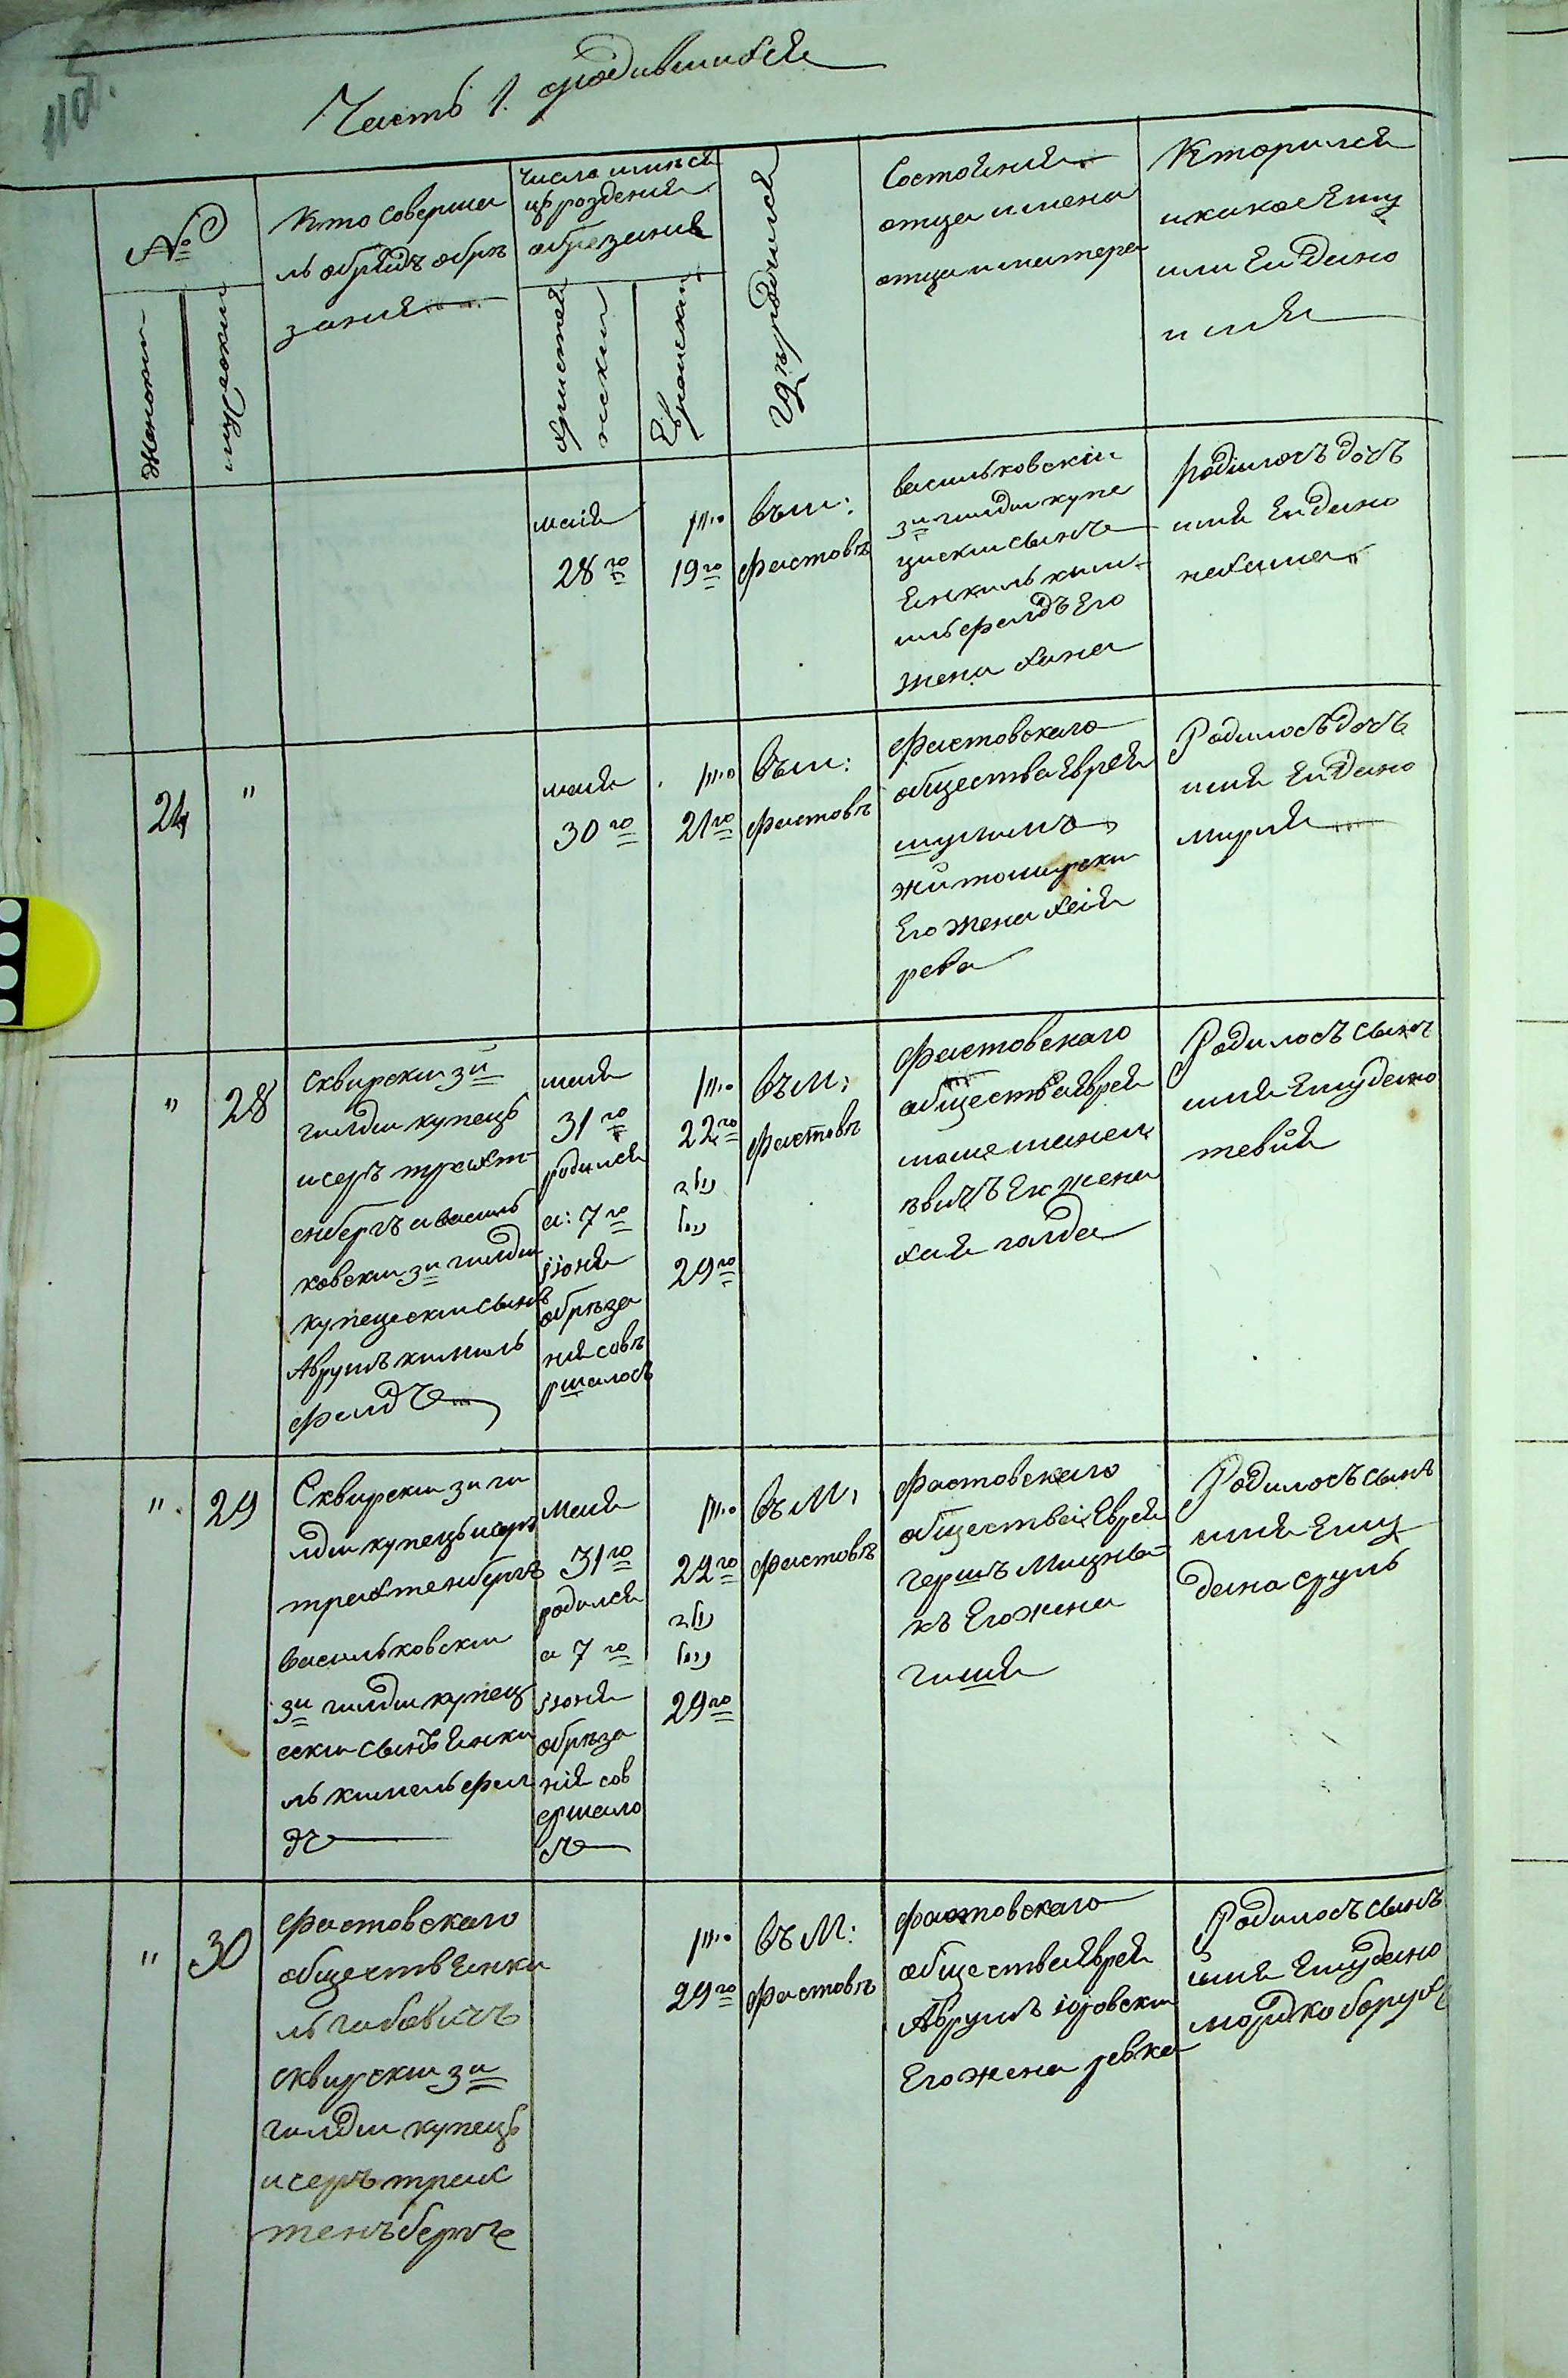 Часть 1. ородившихся
№
Женски
Мужески
Кто соверша
ль обрядъ обрѣ
зания
Числа и мѣся
цъ роздения
обрезания
Христия
нский
Евроиский
Гдѣ родился
Состояния
отца имена
отца и матера
Кторился
и какое Ему
или Ей Дано
имя
мая
28го
סיון
19го
въ м:
фастовѣ
васильковскій
3й гилди купе
ческий сынъ
Енкиль ким
ильфелдъ Его
жена Хана
родилось дочъ
имя Ей дано
нехама
24
"
мая
30го
סיון
21го
въ м:
фастовѣ
Фастовскаго
общества Еврей
шулимъ
житомирски
Его жена Хая
рева
Родилось дочъ
имя Ей Дано
мирия
"
28
Сквирски 3й
гилди купецъ
исеръ трахт
енбергъ и василь
ковски 3й гилди
купечески сынъ
Аврумъ кимиль
фелдъ
мая
31го
родился
а: 7го
июня
обрѣза
ния совѣ
ршалось
סיון
22го
29го
въ М:
фастовѣ
Фастовскаго
общества Еврей
жена
Хая голда
Родилось сынъ
имя Ему дано
тевия
"
29
Сквирски 3й ги
лди купецъ исеръ
трахтенбергъ
васильковски
3й гилди купец
ески сынъ Енки
ль кимельфел
дъ
мая
31го
родился
а 7го
июня
обрѣза
ния сов
ершало
сь
סיון
22го
29го
въ М:
фастовѣ
Фастовскаго
общества Еврей
гершъ Мицни
къ Его жена
гишя
Родилось сынъ
имя Ему
дано сруль
"
30
Фастовскаго
обществ Енки
ль
сквирски 3й
гилди купецъ
исеръ трах
тенъбергъ
סיון
29го
въ М:
фастовѣ
Фастовскаго
общества Еврей
Аврумъ юровски
Его жена ревка
Родилось сынъ
имя Ему дано
мордко борухъ